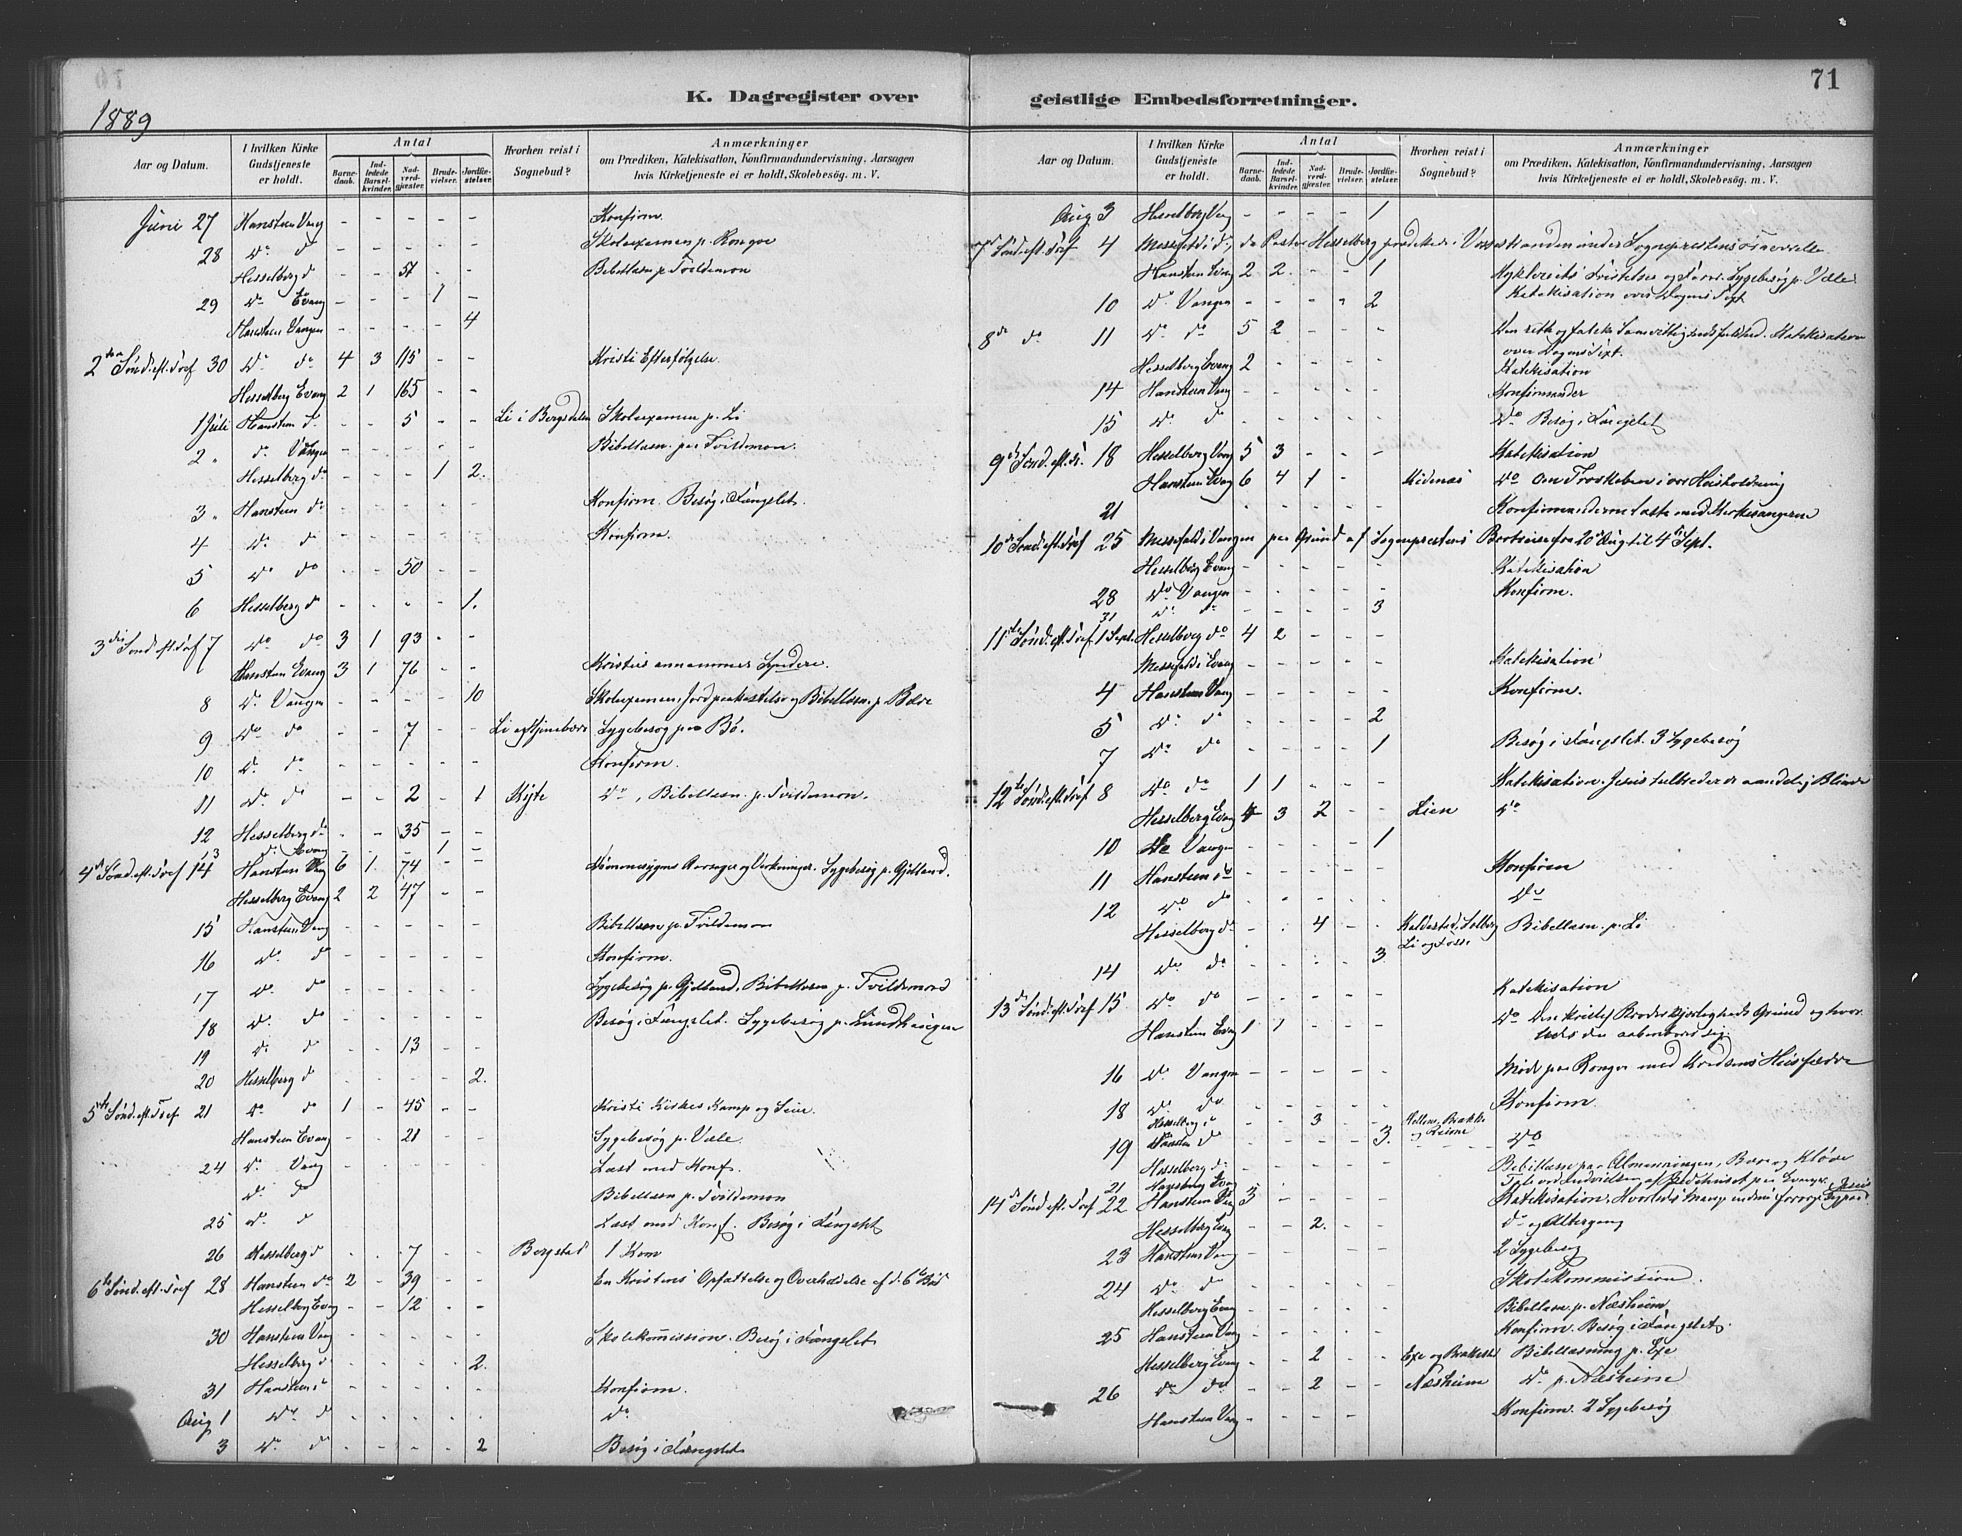 71
K. Dagregister over geistlige Embedsforretninger.
1889
Aar og Datum.
I hvilken Kirke Gudstjeneste er holdt.
Antal
Barnedaab.
Indledede Barselkvinder.
Nadverdgjæster.
Brudevielser.
Jordfæstelser.
Hvorhen reist i Sognebud?
Anmærkninger
om Prædiken, Katekisation, Konfirmandundervisning, Aarsagen
hvis Kirketjeneste ei er holdt, Skolebesøg. m. V.
Juni 27 Hansteen Vang - - - - - Konfirm.
28 do d - - - - - Skoleexamen p. Rongve
Hesselberg d - - 57 - - Bibellæsn. p. Tvildemoen
29 do Evang - - - 1 -
Hansteen Vangen - - - - 4
2den Sønd. eft. Tref 30 do do 4 3 115 - - Kristi Efterfølgelse
Hesselberg Evang 2 1 165 - -
1 Juli Hansteen d. - - 5 - - Li i Bergsdalen Skoleexamen p. Li
2 " do Vangen - - - - - Bibellæsn. paa Tvildemoen.
Hesselberg do - - - 1 2.
3 " Hansteen do - - - - - Konfirm. Besøg i Fængslet.
4 do d - - - - - Konfirm.
5 do do - - 50 - -
6 Hesselberg d - - - - 1.
3die Sønd. eft. Tref 7 do do 3 1 93 - -
Hansteen Evang 3 1 76 - - Kristus annammer Syndere.
8 do Vangen - - - - 10 Skoleexamen, Jordpaakastelse og Bibellæsn. p.
9 do do - - 7 - - Li og Sygebesøg paa Bø.
10 do do - - - - - Konfirm.
11 do do - - 2 - 1 Kyte do, Bibellæsn. p. Tvildemoen.
12 Hesselberg do - - 35 - -
13 do Evang - - - 1 -
4de Sønd. eft. Tref 14 Hansteen Vang 6 1 74 - - Aarsager og Virkninger. Sygebesøg p. Gjelland.
Hesselberg Evang 2 2 47 - -
15 Hansteen Vang - - - - - Bibellæsn p. Tvildemoen
16 do d - - - - - Konfirm.
17 do do - - - - - Sygebesøg p. Gjelland, Bibellæsn p. Tvildemoen
18 do do - - - - - Besøg i Fængslet. Sygebesøg p.
19 do d - - 13 - -
20 Hesselberg d - - - - 2.
5te Sønd. eft. Tref 21 do do 1 - 45 - - Kristi Kirkes Kamp og Seier.
Hansteen Evang - - 21 - - Sygebesøg p.
24 do Vang - - - - - Læst med Konf.
do do - - - - - Bibellæsn p. Tvildemoen
25 do d - - - - - Læst med Konf. Besøg i Fængslet
26 Hesselberg d - - 7 - - Bergstad 1 Kom
6te Sønd. eft. Tref 28 Hansteen do 2 - 39 - - En Kristens Opfattelse og Overholdelse af d. 6te Bud
Hesselberg Evang - - 12 - -
30 Hansteen Vang - - - - - Skolekommission. Besøg i Fængslet
Hesselberg d - - - - 2.
31 Hansteen d - - - - - Konfirm.
Aug 1 do d - - - - - do
3 do d - - - - 2 Besøg i Fængslet
Aar og Datum.
I hvilken Kirke Gudstjeneste er holdt.
Antal
Barnedaab.
Indledede Barselkvinder.
Nadverdgjæster.
Brudevielser.
Jordfæstelser.
Hvorhen reist i Sognebud?
Anmærkninger
om Prædiken, Katekisation, Konfirmandundervisning, Aarsagen
hvis Kirketjeneste ei er holdt, Skolebesøg. m. V.
Aug 3 Hesselberg Vang - - - - 1
7de Sønd. eft. Tref 4 Messefald i d., da Pastor Hesselberg prædikede i Vossestranden under Sogneprestens
Hansteen Evang 2 2 - - 1 Sygebesøg p.
10 do Vangen - - - - 2 Katekisation over Dagens Text
8de do 11 do do 5 2 - - - Den Samvittighed. Katekisation
over Dagens Text.
Hesselberg Evang 2 - - - - Katekisation
14 Hansteen Vang - - - - - Konfirmander
15 do d - - - - - do Besøg i Fængslet
9de Sønd. eft. Tr. 18 Hesselberg Vang 5 3 - - - Katekisation
Hansteen Evang 6 4 1 - Midenæs do Om Troskaben i vor Husholdning
21 - - - - - Konfirmanderne læste med Kirkesangeren
10de Sønd. eft. Tref 25 Messefald i Vangen paa Grund af Sogneprestens Bortreise fra 20de Aug til 4de Sept.
Hesselberg Evang - - - - - Katekisation
28 do Vangen - - - - - Konfirm.
31 do do - - - - 3
11te Sønd. eft. Tref 1 Sept. Hesselberg do 4 2 - - -
Messefald i Evang - - - - - Katekisation
4 Hansteen Vang - - - - - Konfirm.
5 do do - - - - 2
7 do do - - - - 1 Besøg i Fængslet. 3 Sygebesøg
12te Sønd. eft. Tref 8 do do 1 1 - - - Katekisation. Jesus helbreder de aandelig Blinde
Hesselberg Evang 4 3 2 - - Lien do
10 do Vangen - - - - 1
11 Hansteen do - - - - - Konfirm
12 do do - - - - - do
Hesselberg do - - 4 - - Kaldestad, Solberg Bibellæsn. p. Li
Li og
14 do do - - - - 3
13de Sønd. eft. Tref 15 do do - - - - - Katekisation
Hansteen Evang 1 1 - - - do Den kristel. Broderkjærligheds Grund og hvorledes den aabenbarer sig.
16 do Vangen - - - - - Møde paa Rongve med Kredsens Husfædre
18 do do - - - - - Konfirm.
Hesselberg d - - 3 - - Brække
19 Hansteen do - - - - 3. do
Hesselberg do - - - - - Bibellæsn paa Almenningen,
21 Evang - - - - - Indvielsen af Bedehuset paa Evanger
14de Sønd. eft. Tref 22 Hansteen Vang 3 - - - - Katekisation.
Hesselberg Evang - - 2. - - do og Altergang
23 Hansteen Vang - - - - - 2 Sygebesøg
24 do d - - - - - Skolekommission.
Hesselberg Evang - - - - - Bibellæsn p. Næsheim
25 Hansteen Vang - - - - - Konfirm. Besøg i Fængslet.
Hesselberg Evang - - 2 - - Exe og Brækkestad Bibellæsning p. Exe
26 do do - - 2 - - Næsheim do p. Næsheim
Hansteen Vang - - - - Konfirm. 2 Sygebesøg